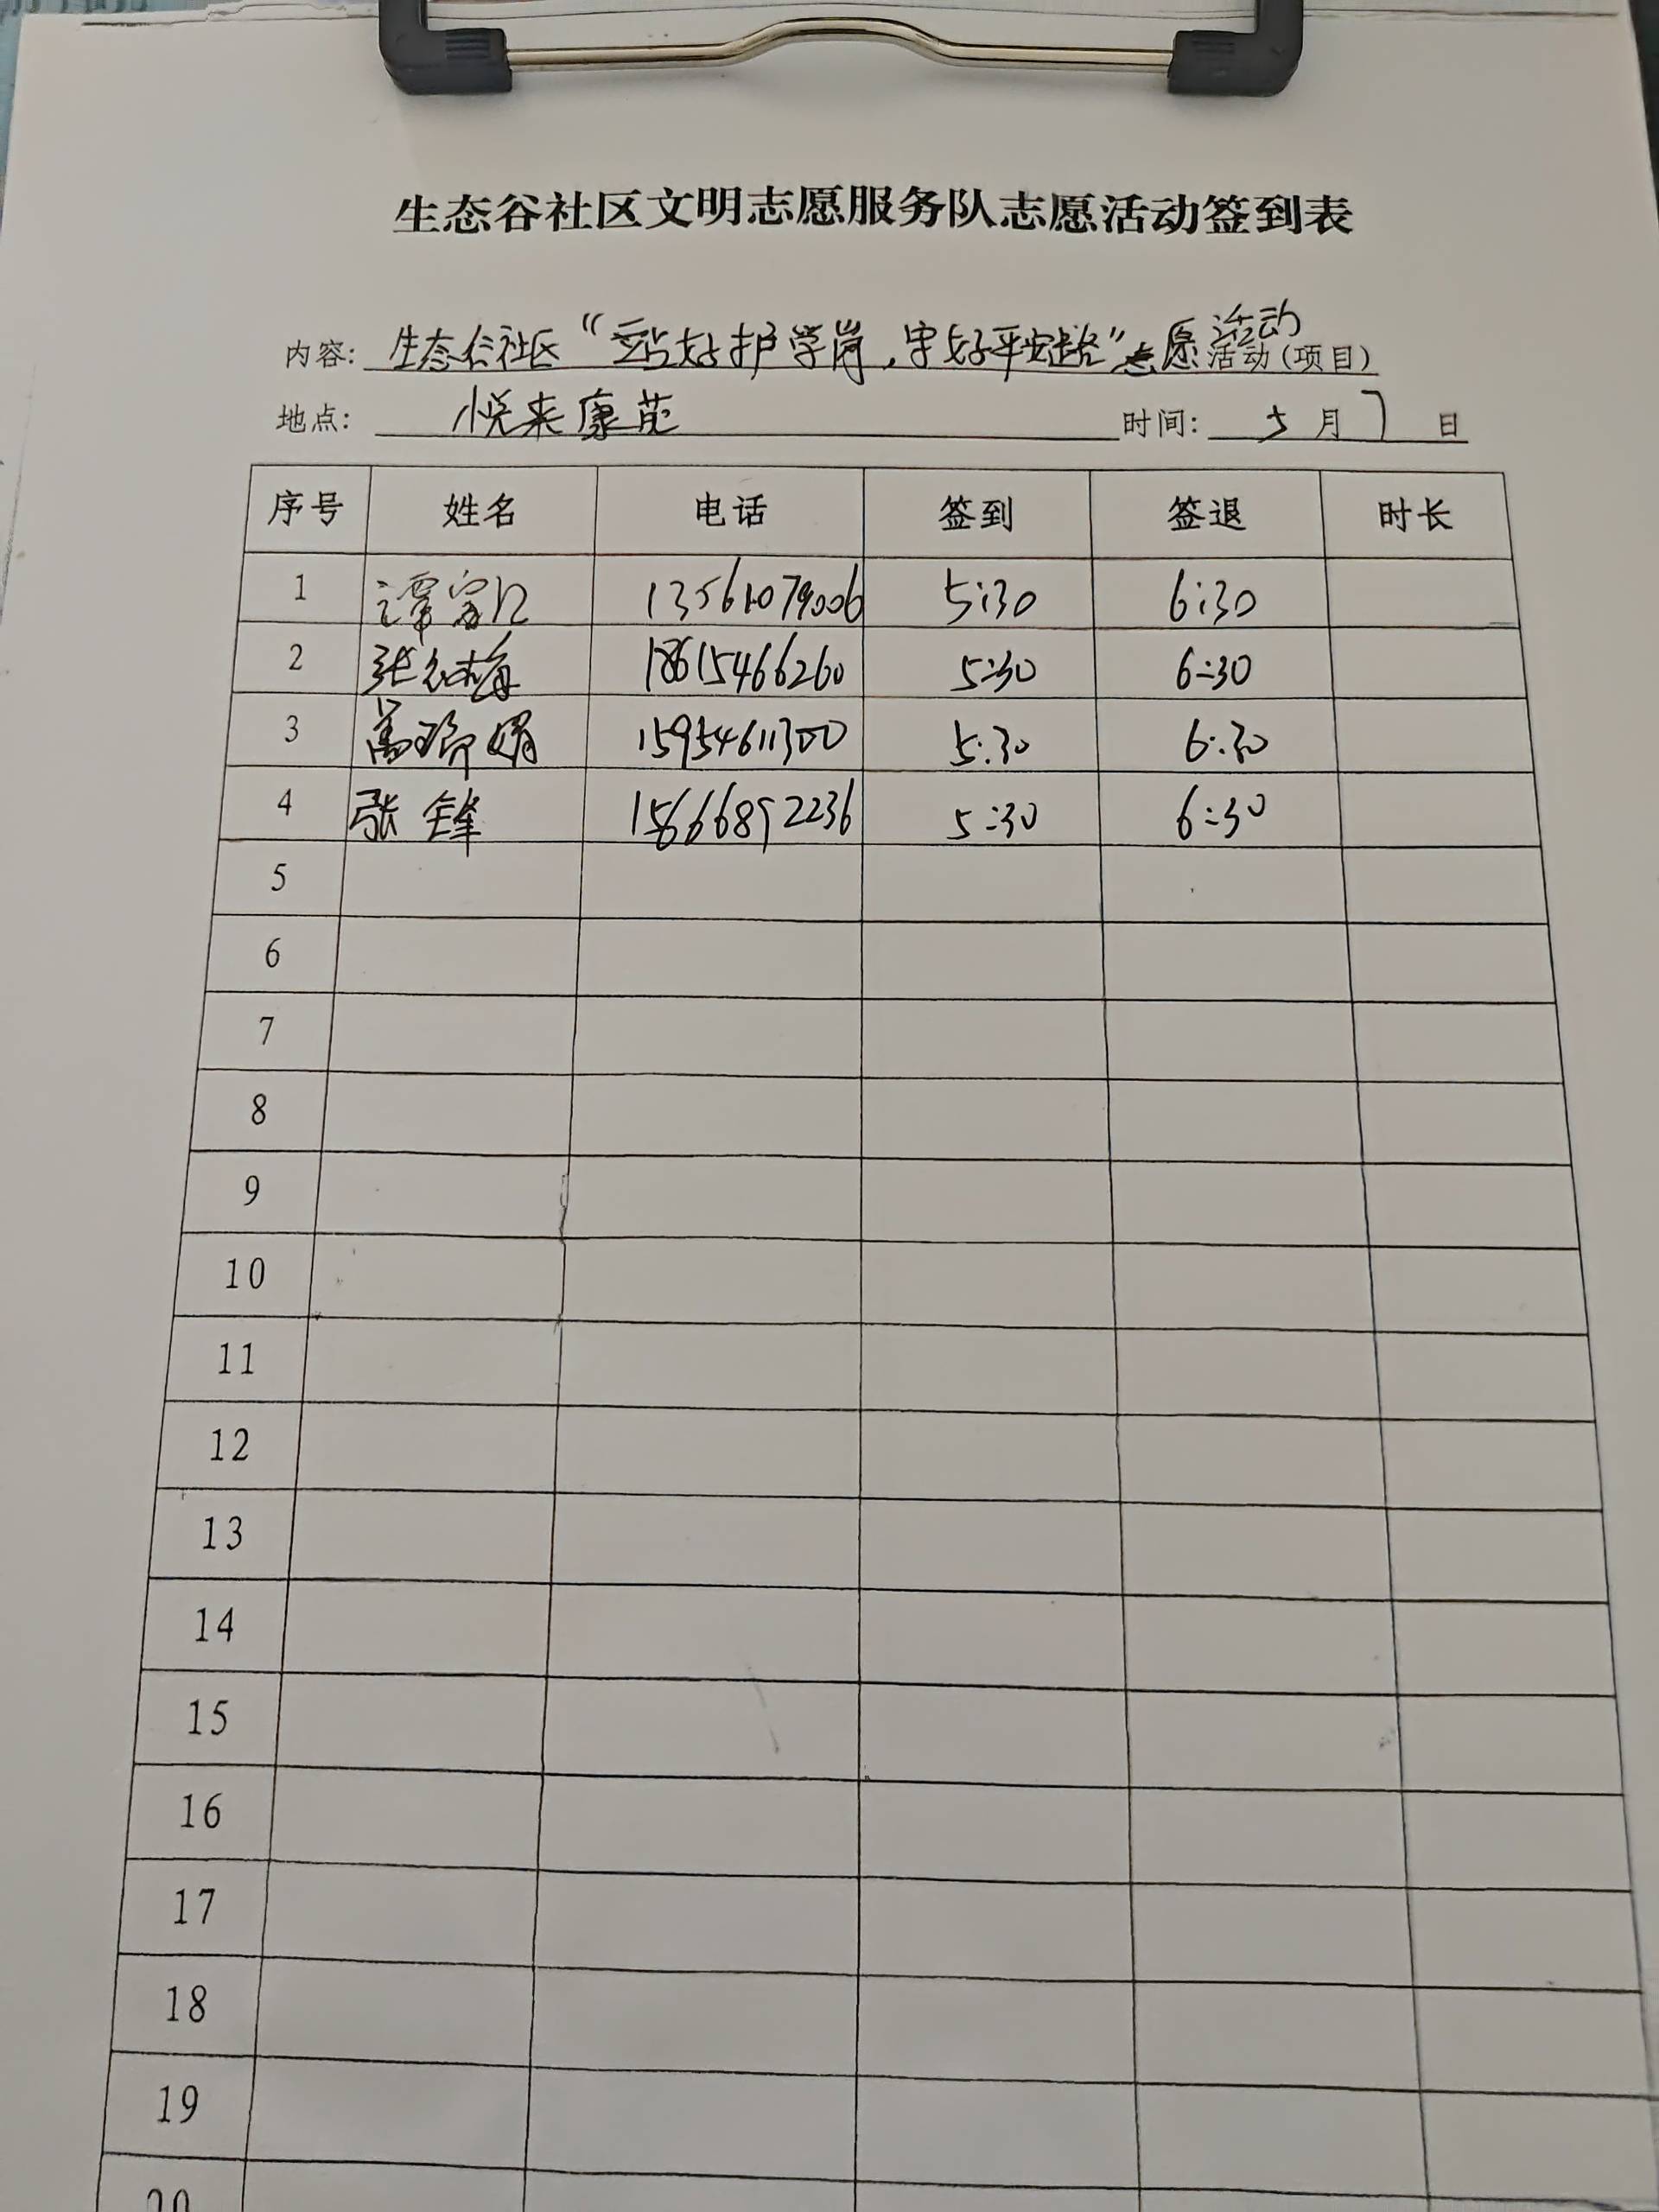 生态谷社区文明志愿服务队志愿活动签到表
内容: 生态谷社区“站好护学岗,守好平安路”志愿活动 活动(项目)
地点: 悦来康苑 时间: 5月7日
序号 姓名 电话 签到 签退 时长
1 谭 13561079006 5:30 6:30
2 张 梅 18615466260 5:30 6:30
3 高 娟 15954611300 5:30 6:30
4 张锋 15666892236 5:30 6:30
5
6
7
8
9
10
11
12
13
14
15
16
17
18
19
20